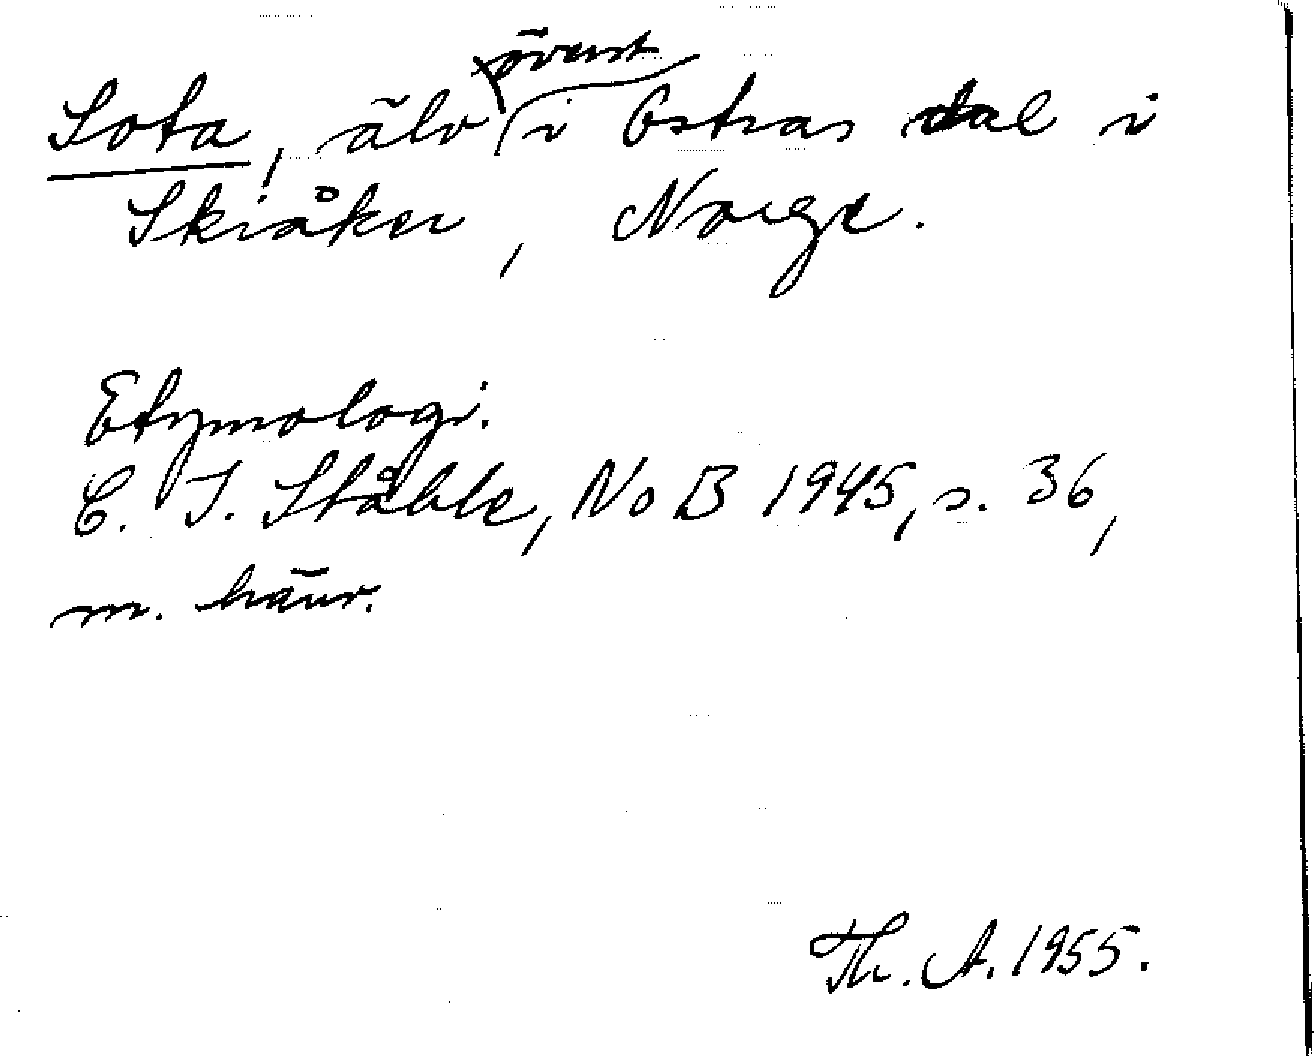 Sota, älv överst i Ostras dal i
Skiåker, Norge.
Etymologi.
C. I. Ståhle, NoB 1945, s. 36,
m. hänv.
Th. A. 1955.